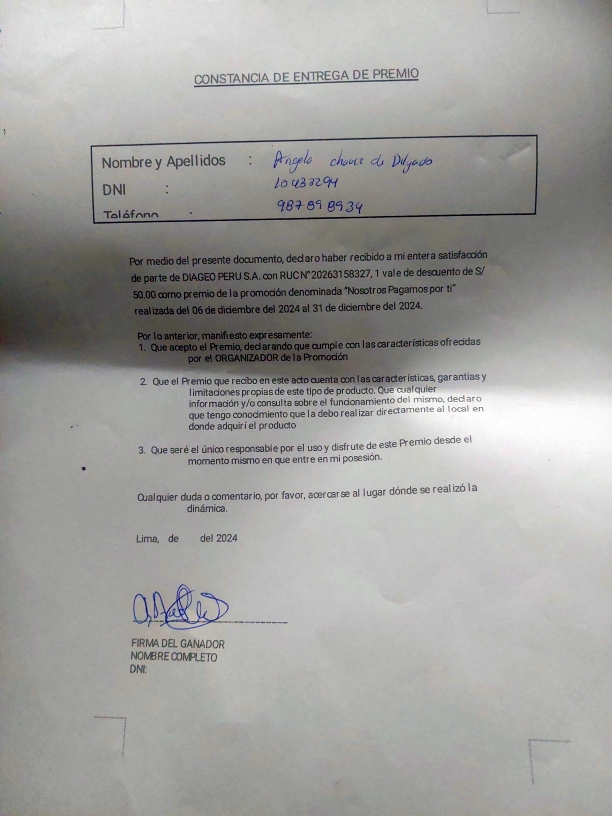 CONSTANCIA DE ENTREGA DE PREMIO
Nombre y Apellidos : Angelo chavez de Delgado
DNI : 10433294
Teléfono : 987898934
Por medio del presente documento, declaro haber recibido a mi entera satisfacción
de parte de DIAGEO PERU S.A. con RUC N° 20263158327, 1 vale de descuento de S/
50.00 como premio de la promoción denominada "Nosotros Pagamos por ti"
realizada del 06 de diciembre del 2024 al 31 de diciembre del 2024.
Por lo anterior, manifiesto expresamente:
1. Que acepto el Premio, declarando que cumple con las características ofrecidas
por el ORGANIZADOR de la Promoción
2. Que el Premio que recibo en este acto cuenta con las características, garantías y
limitaciones propias de este tipo de producto. Que cualquier
información y/o consulta sobre el funcionamiento del mismo, declaro
que tengo conocimiento que la debo realizar directamente al local en
donde adquirí el producto
3. Que seré el único responsable por el uso y disfrute de este Premio desde el
momento mismo en que entre en mi posesión.
Cualquier duda o comentario, por favor, acercarse al lugar dónde se realizó la
dinámica.
Lima, de del 2024
FIRMA DEL GANADOR
NOMBRE COMPLETO
DNI: